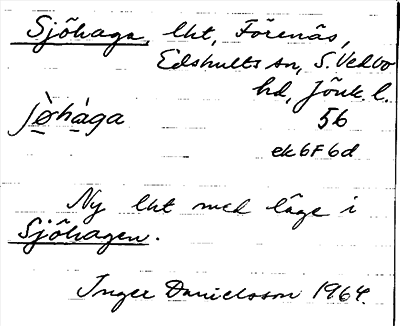 Sjöhaga, lht, Förenäs,
Edshults sn, S. Vedbo
hd, Jönk. l.
jø̀hàga
56
ek 6F6d
Ny lht med läge i
Sjöhagen.
Inger Danielsson 1964.